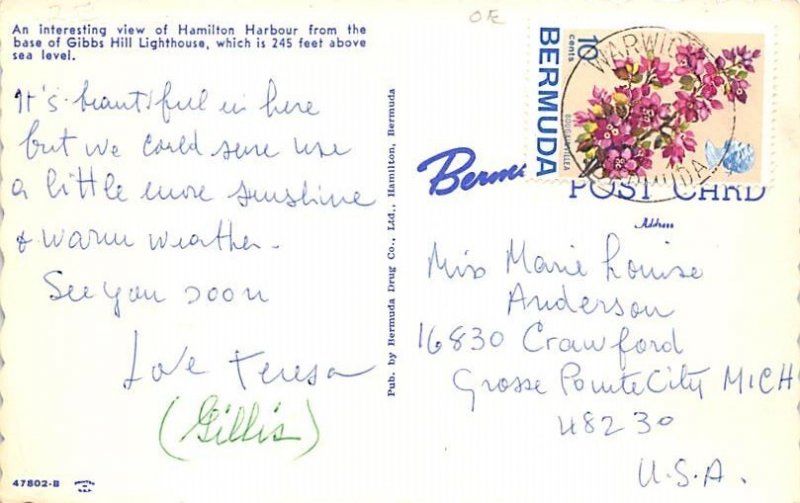 An interesting view of Hamilton Harbour from the
base of Gibbs Hill Lighthouse, which is 245 feet above
sea level.
It's beautiful in here
but we could sure use
a little more sunshine
& warm weather.
See you soon
Love Teresa
(Gillis)
47802-B
Pub. by Bermuda Drug Co., Ltd., Hamilton, Bermuda
OE
10
cents
BERMUDA
BOUGAINVILLEA
WARWICK
BERMUDA
Bermu
POST CARD
Address
Miss Marie Louise
Anderson
16830 Crawford
Grosse Pointe City MICH
48230
U.S.A.